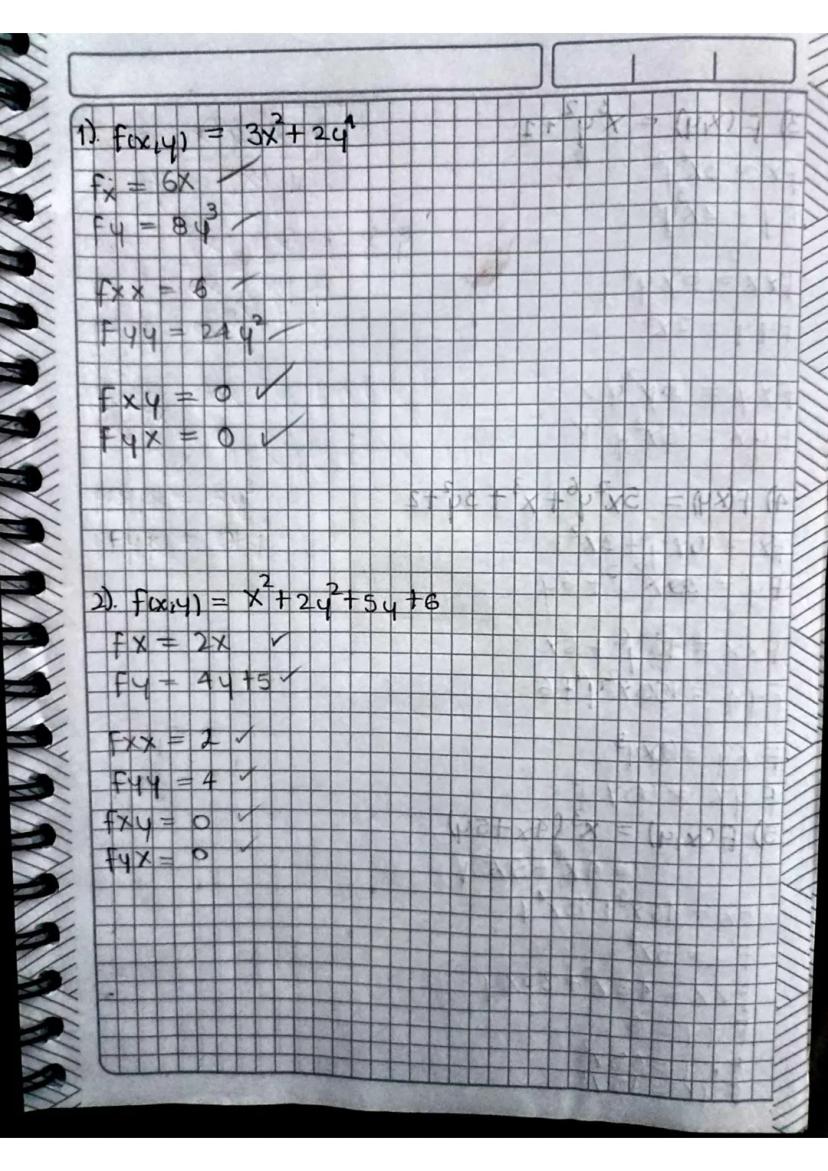 1). f(x,y) = 3x² + 2y⁴
fx = 6x ✓
fy = 8y³ ✓
fxx = 6 ✓
fyy = 24y² ✓
fxy = 0 ✓
fyx = 0 ✓
2). f(x,y) = x² + 2y² + 5y + 6
fx = 2x ✓
fy = 4y + 5 ✓
fxx = 2 ✓
fyy = 4 ✓
fxy = 0 ✓
fyx = 0 ✓